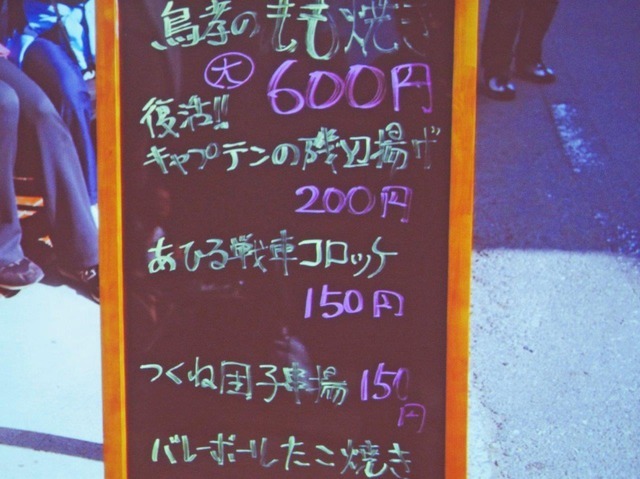 鳥孝のもも焼き
大 600円
復活!!
キャプテンの磯辺揚げ
200円
あひる戦車コロッケ
150円
つくね団子串揚 150
円
バレーボールたこ焼き